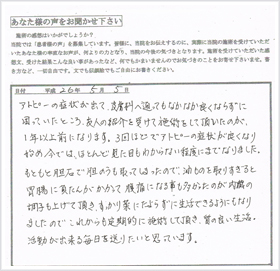 あなた様の声をお聞かせ下さい
施術の感想はいかがでしょうか?
日付 平成 26年 5月 5日
アトピーの症状が出て、皮膚科へ通てもなかなか良くならずに
困っていたところ、友人の紹介を受けて施術して頂いたのが、
1年以上前になります。3回ほどでアトピーの症状が良くなり
始め今では、ほとんど見た目もわからない程度にまでなりました。
もともと胆石で胆のうも取ってしまったので、油ものを取りすぎると
胃腸に負たんがかかって腹痛になる事も多かったのが内臓の
調子も上げて頂き、すっかり薬にたよらずに生活できるようにもなり
ましたのでこれからも定期的に施術して頂き、質の良い生活・
活動が出来る毎日を送りたいと思っています。